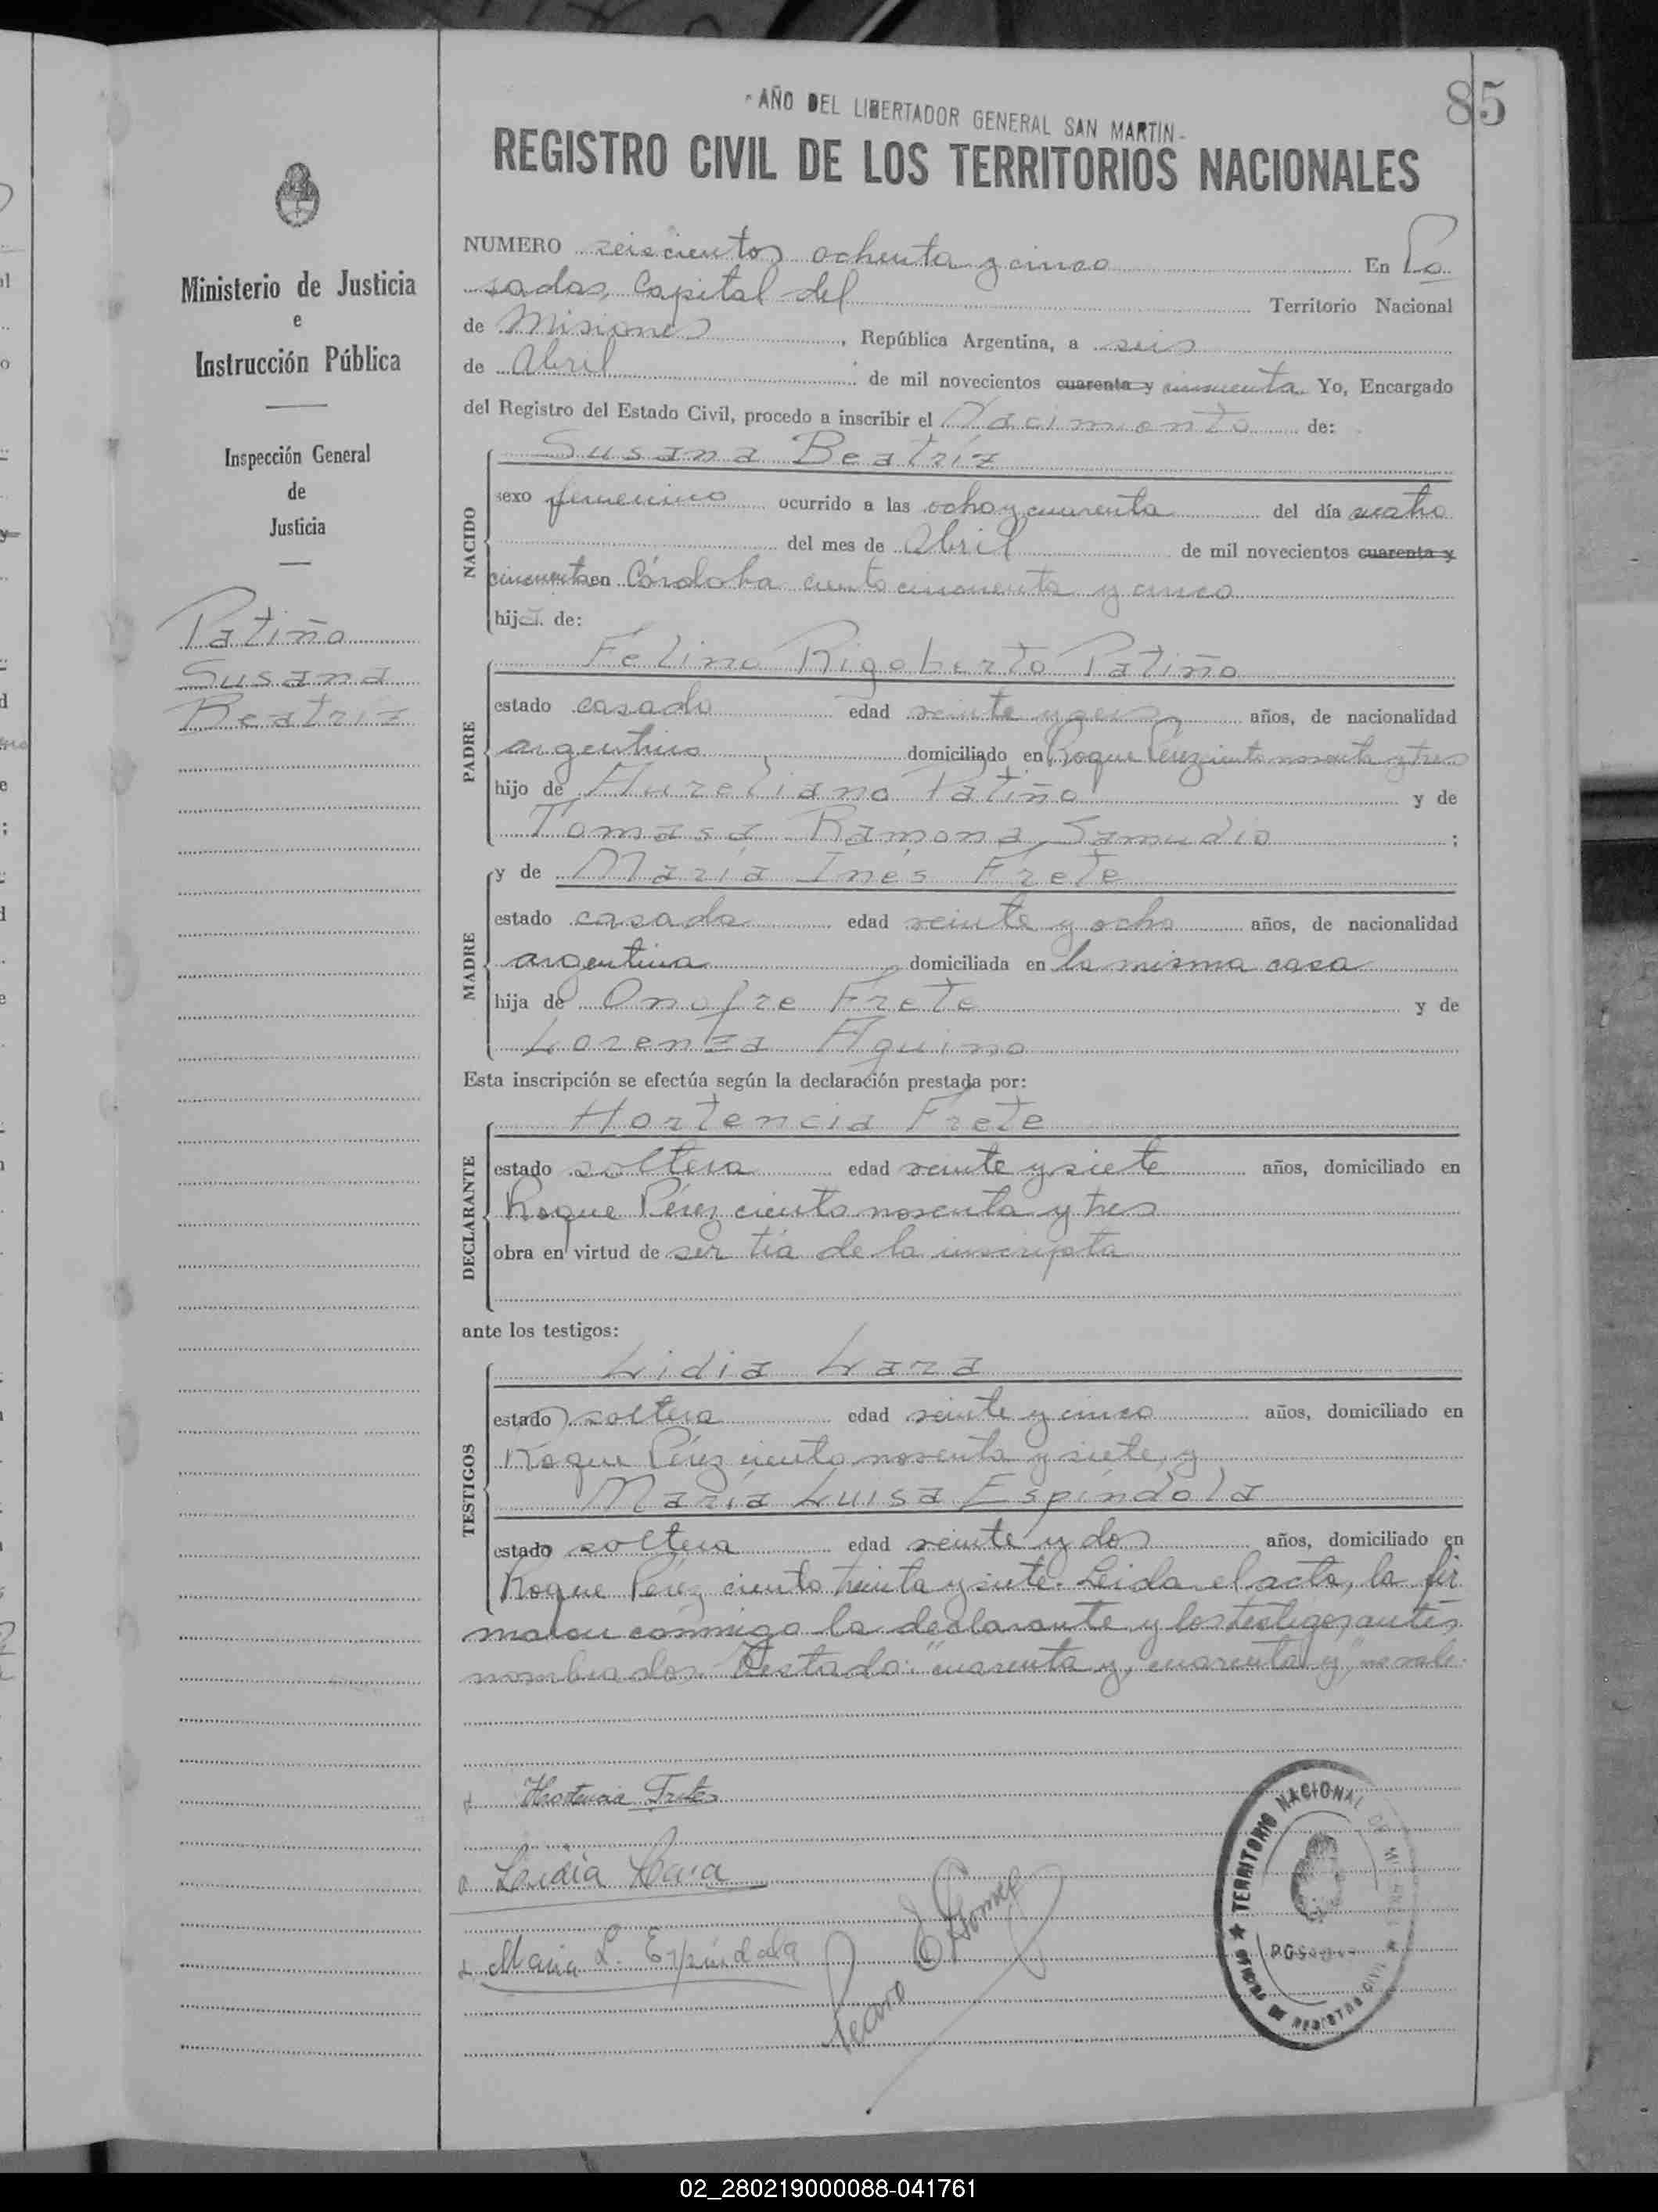 85
- AÑO DEL LIBERTADOR GENERAL SAN MARTIN -
REGISTRO CIVIL DE LOS TERRITORIOS NACIONALES
Ministerio de Justicia
e
Instrucción Pública
Inspección General
de
Justicia
Patiño
Susana
Beatriz
NUMERO seiscientos ochenta y cinco En Po
sadas, Capital del Territorio Nacional
de Misiones, República Argentina, a seis
de Abril de mil novecientos cuarenta y cincuenta Yo, Encargado
del Registro del Estado Civil, procedo a inscribir el Nacimiento de:
NACIDO
Susana Beatriz
sexo femenino ocurrido a las ocho y cuarenta del día cuatro
del mes de Abril de mil novecientos cuarenta y
cincuenta en Córdoba ciento cincuenta y cinco
hija de:
PADRE
Felino Rigoberto Patiño
estado casado edad veinte y seis años, de nacionalidad
argentino domiciliado en Roque Pérez ciento noventa y tres
hijo de Aureliano Patiño y de
Tomasa Ramona Samudio ;
MADRE
y de María Inés Frete
estado casada edad veinte y ocho años, de nacionalidad
argentina domiciliada en la misma casa
hija de Onofre Frete y de
Lorenza Aquino
Esta inscripción se efectúa según la declaración prestada por:
DECLARANTE
Hortencia Frete
estado soltera edad veinte y siete años, domiciliado en
Roque Pérez ciento noventa y tres
obra en virtud de ser tía de la inscripta
ante los testigos:
TESTIGOS
Lidia Lara
estado soltera edad veinte y cinco años, domiciliado en
Roque Pérez ciento noventa y siete, y
María Luisa Espíndola
estado soltera edad veinte y dos años, domiciliado en
Roque Pérez ciento treinta y siete. Leida el acta, la fir
maron conmigo la declarante y los testigos antes
nombrados. Testado: "cuarenta y, cuarenta y" no vale.
Hortencia Frete
Lidia Lara
Maria L. Espíndola
Gomez
★ TERRITORIO NACIONAL DE MISIONES ★
POSADAS
OFICINA DE REGISTRO CIVIL
02_280219000088-041761